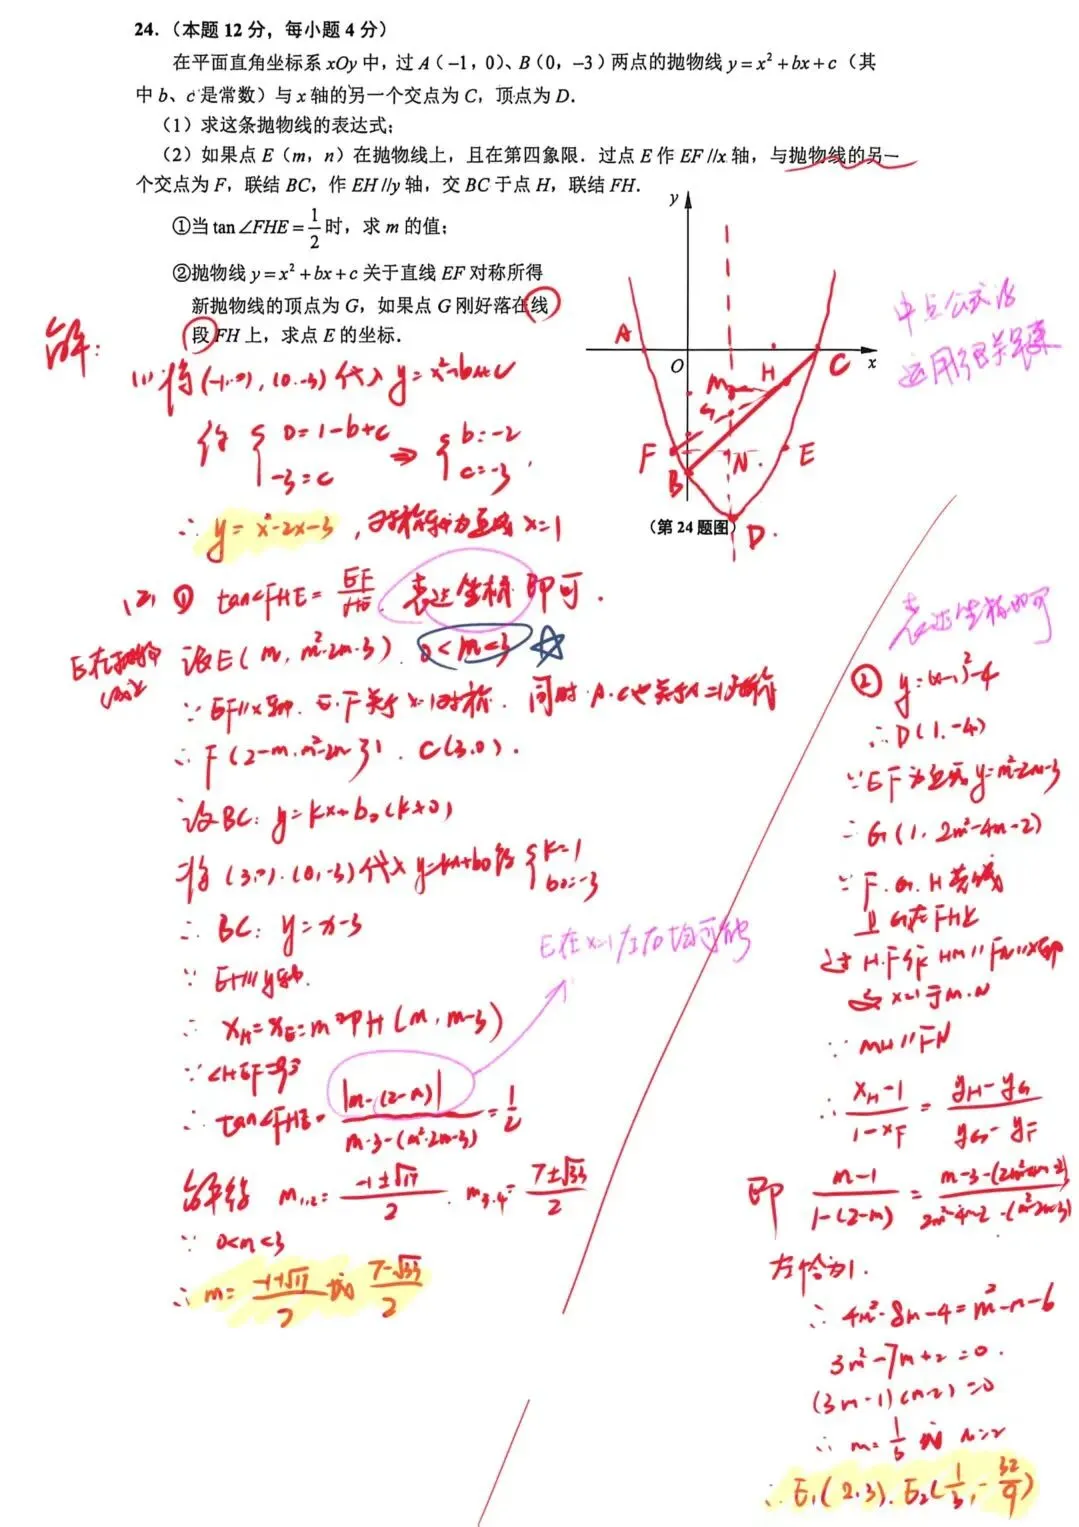 24.（本题 12 分，每小题 4 分）
在平面直角坐标系 xOy 中，过 A（−1，0）、B（0，−3）两点的抛物线 y = x² + bx + c（其
中 b、c 是常数）与 x 轴的另一个交点为 C，顶点为 D．
（1）求这条抛物线的表达式；
（2）如果点 E（m，n）在抛物线上，且在第四象限．过点 E 作 EF //x 轴，与抛物线的另一
个交点为 F，联结 BC，作 EH //y 轴，交 BC 于点 H，联结 FH．
①当 tan ∠FHE = 1/2 时，求 m 的值；
②抛物线 y = x² + bx + c 关于直线 EF 对称所得
新抛物线的顶点为 G，如果点 G 刚好落在线
段 FH 上，求点 E 的坐标．
y
A
O
C
x
M
H
G
F
B
N
E
D
（第 24 题图）
中点公式及
解：
(1) 将 (-1,0), (0,-3) 代入 y = x²+bx+c
得 { 0 = 1-b+c
-3 = c
⇒ { b=-2
c=-3
∴ y = x²-2x-3，对称轴为直线 x=1
(2) ① tan∠FHE = EF/HE，表达坐标即可．
E在抛物线
设E(m, m²-2m-3)．0<m<3 ☆
∵ EF∥x轴，E、F关于x=1对称．同时A、C也关于x=1对称
∴ F(2-m, m²-2m-3)．C(3,0)．
设BC：y=kx+b₀(k≠0)
将 (3,0)、(0,-3) 代入 y=kx+b₀ 得 { k=1
b₀=-3
∴ BC：y=x-3
∵ EH∥y轴．
∴ x_H = x_E = m 即 H(m, m-3)
∵ ∠HEF=90°
∴ tan∠FHE = |m-(2-m)| / (m-3-(m²-2m-3)) = 1/2
解得 m₁,₂ = (-1±√17)/2，m₃,₄ = (7±√33)/2
∵ 0<m<3
∴ m = (-1+√17)/2 或 (7-√33)/2
E在x=1左右均可能
表达坐标即可
② y=(x-1)²-4
∴ D(1,-4)
∵ EF为直线 y=m²-2m-3
∴ G(1, 2m²-4m-2)
∵ F、G、H共线
且G在FH上
过H、F作HM∥FN∥x轴
交x=1于M、N
∵ MH∥FN
∴ (x_H-1)/(1-x_F) = (y_H-y_G)/(y_G-y_F)
即 (m-1)/(1-(2-m)) = (m-3-(2m²-4m-2))/(2m²-4m-2-(m²-2m-3))
左恰为1．
∴ 4m²-8m-4 = m²-m-6
3m²-7m+2=0．
(3m-1)(m-2)=0
∴ m=1/3 或 m=2
∴ E₁(2,3)．E₂(1/3, -32/9)